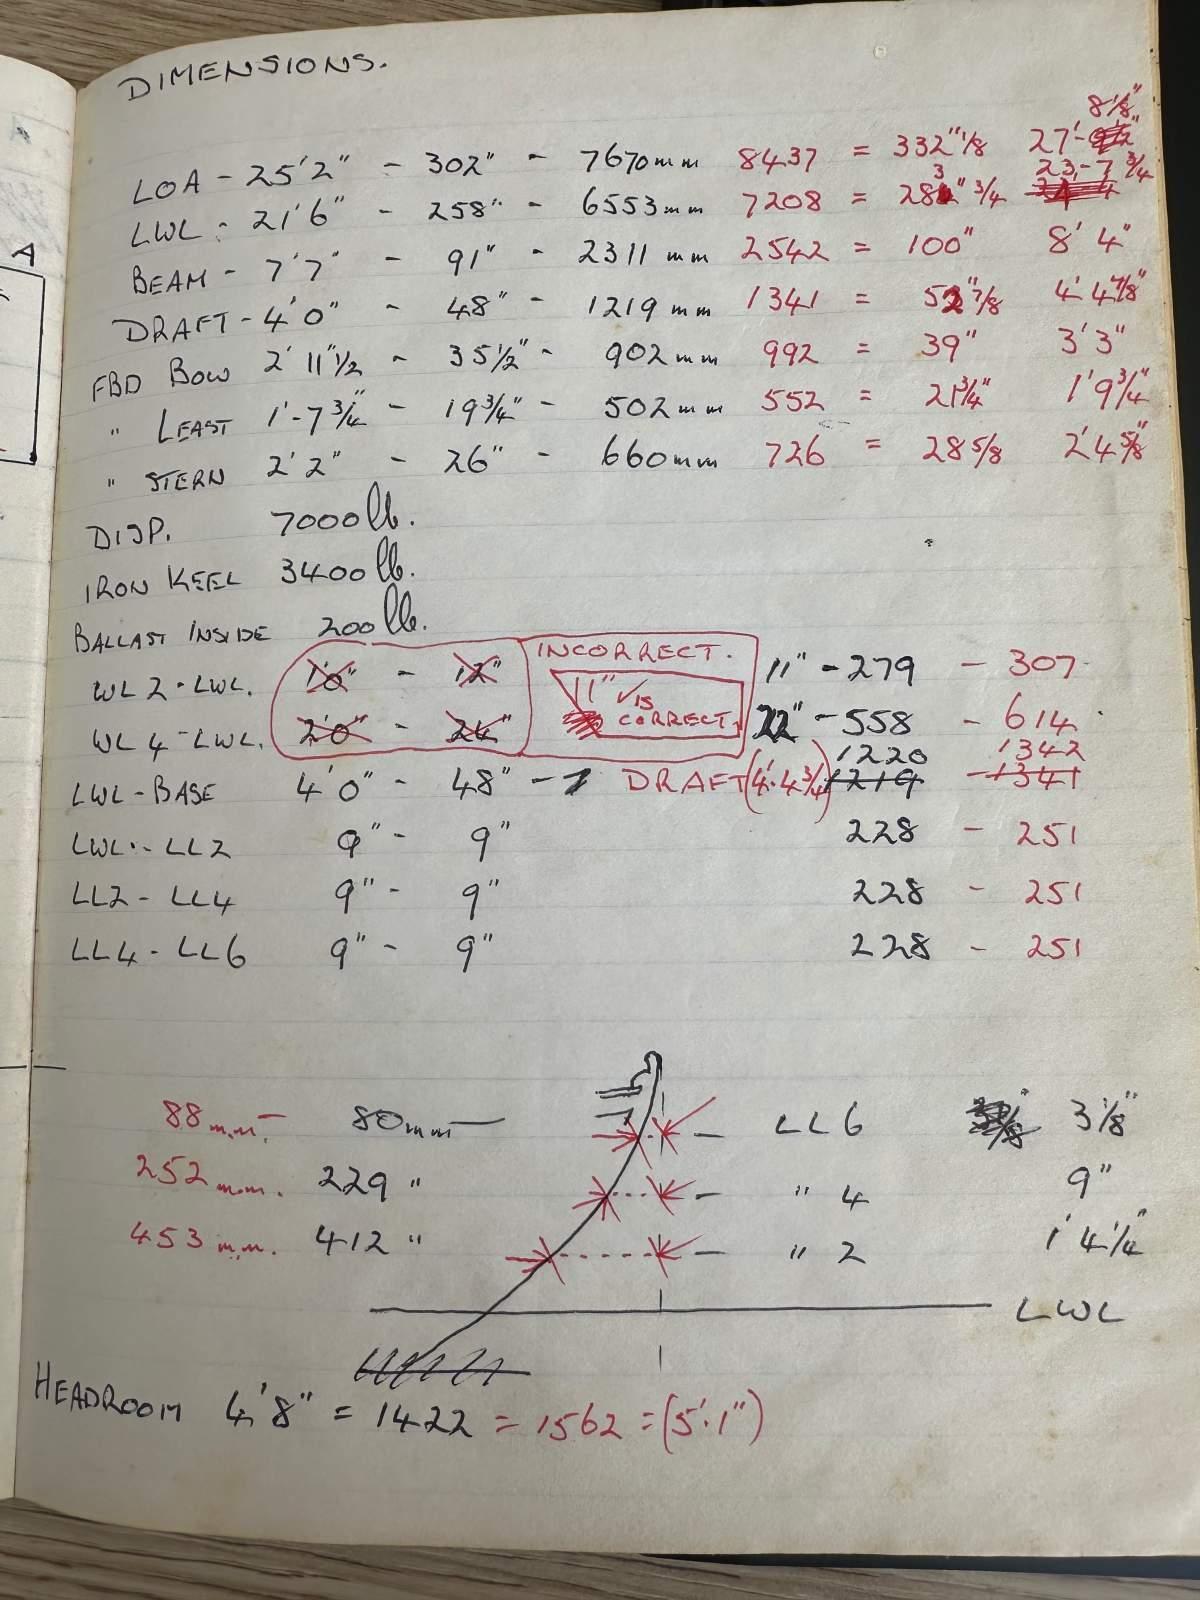 DIMENSIONS.
8 1/8"
LOA - 25'2" - 302" - 7670mm 8437 = 332" 1/8 27'-
23,-7 3/4
LWL - 21'6" - 258" - 6553mm 7208 = 283" 3/4
BEAM - 7'7" - 91" - 2311mm 2542 = 100" 8'4"
DRAFT - 4'0" - 48" - 1219mm 1341 = 52" 7/8 4'4 7/8"
FBD BOW 2'11" 1/2 - 35 1/2" - 902mm 992 = 39" 3'3"
" LEAST 1'-7 3/4" - 19 3/4" - 502mm 552 = 21 3/4" 1'9 3/4"
" STERN 2'2" - 26" - 660mm 726 = 28 5/8 2'4 5/8"
DISP. 7000lb.
IRON KEEL 3400lb.
BALLAST INSIDE 200lb.
INCORRECT.
WL2-LWL. 1'0" - 12" 11" ✓ IS CORRECT. 11" - 279 - 307
WL4-LWL. 2'0" - 24" 22" - 558 - 614
1220 1342
LWL-BASE 4'0" - 48" - DRAFT (4'.4 3/4) 1219 - 1341
LWL-LL2 9" - 9" 228 - 251
LL2-LL4 9" - 9" 228 - 251
LL4-LL6 9" - 9" 228 - 251
88mm. 80mm LL6 3 1/8"
252mm. 229 " " 4 9"
453mm. 412 " " 2 1'4 1/4"
LWL
HEADROOM 4'8" = 1422 = 1562 = (5'.1")